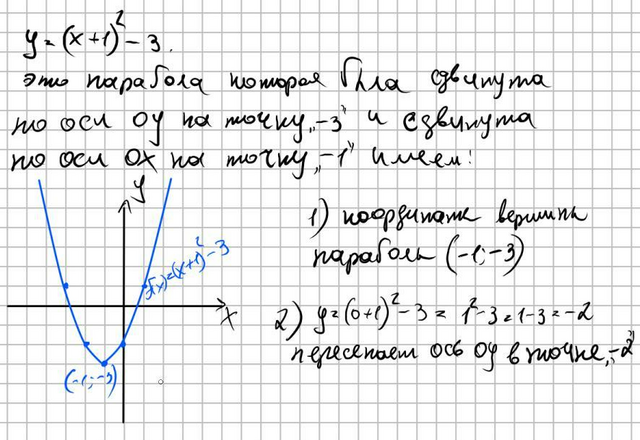 y = (x+1)² - 3.
это парабола которая была сдвинута
по оси OY на точку „-3" и сдвинута
по оси OX на точку „-1" имеем:
y
1) координаты вершины
параболы (-1; -3)
f(x)=(x+1)²-3
x
2) y=(0+1)²-3 = 1²-3=1-3=-2
пересекает ось OY в точке „-2"
(-1;-3)